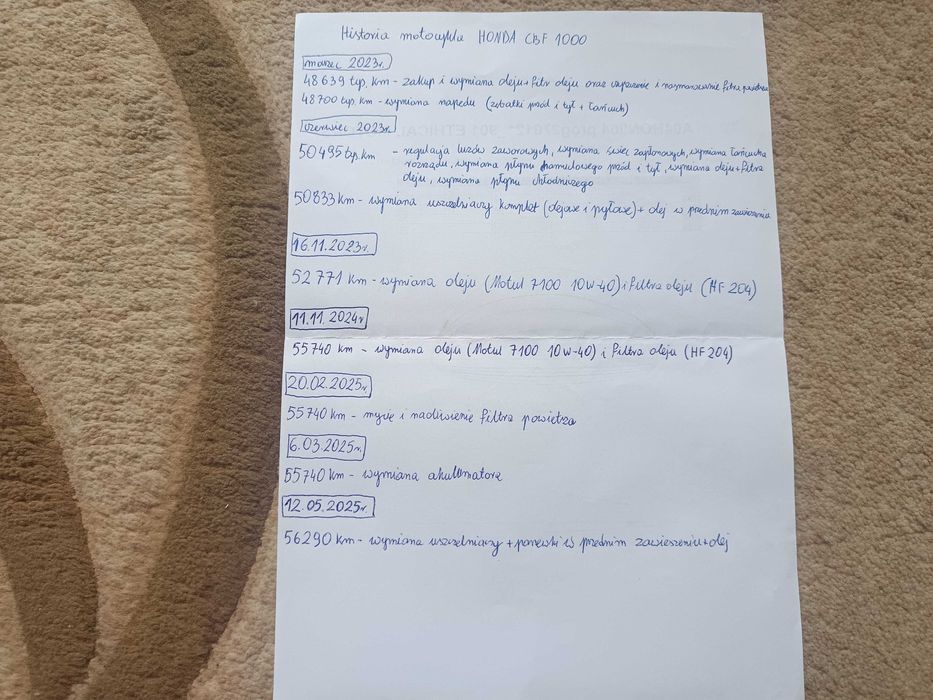 Historia motocykla HONDA CBF 1000
marzec 2023r.
48639 tyś. km - zakup i wymiana oleju + filtr oleju oraz czyszczenie i nasmarowanie filtra powietrza
48700 tyś. km - wymiana napędu (zębatki przód i tył + łańcuch)
czerwiec 2023r.
50495 tyś. km - regulacja luzów zaworowych, wymiana świec zapłonowych, wymiana łańcucha
rozrządu, wymiana płynu hamulcowego przód i tył, wymiana oleju + filtra
oleju, wymiana płynu chłodniczego
50833 km - wymiana uszczelniaczy komplet (olejowe i pyłowe) + olej w przednim zawieszeniu
16.11.2023r.
52771 km - wymiana oleju (Motul 7100 10w-40) i filtra oleju (HF 204)
11.11.2024r
55740 km - wymiana oleju (Motul 7100 10w-40) i filtra oleju (HF 204)
20.02.2025r.
55740 km - mycie i naoliwienie filtra powietrza
6.03.2025r.
55740 km - wymiana akumulatora
12.05.2025r.
56290 km - wymiana uszczelniaczy + panewki w przednim zawieszeniu + olej